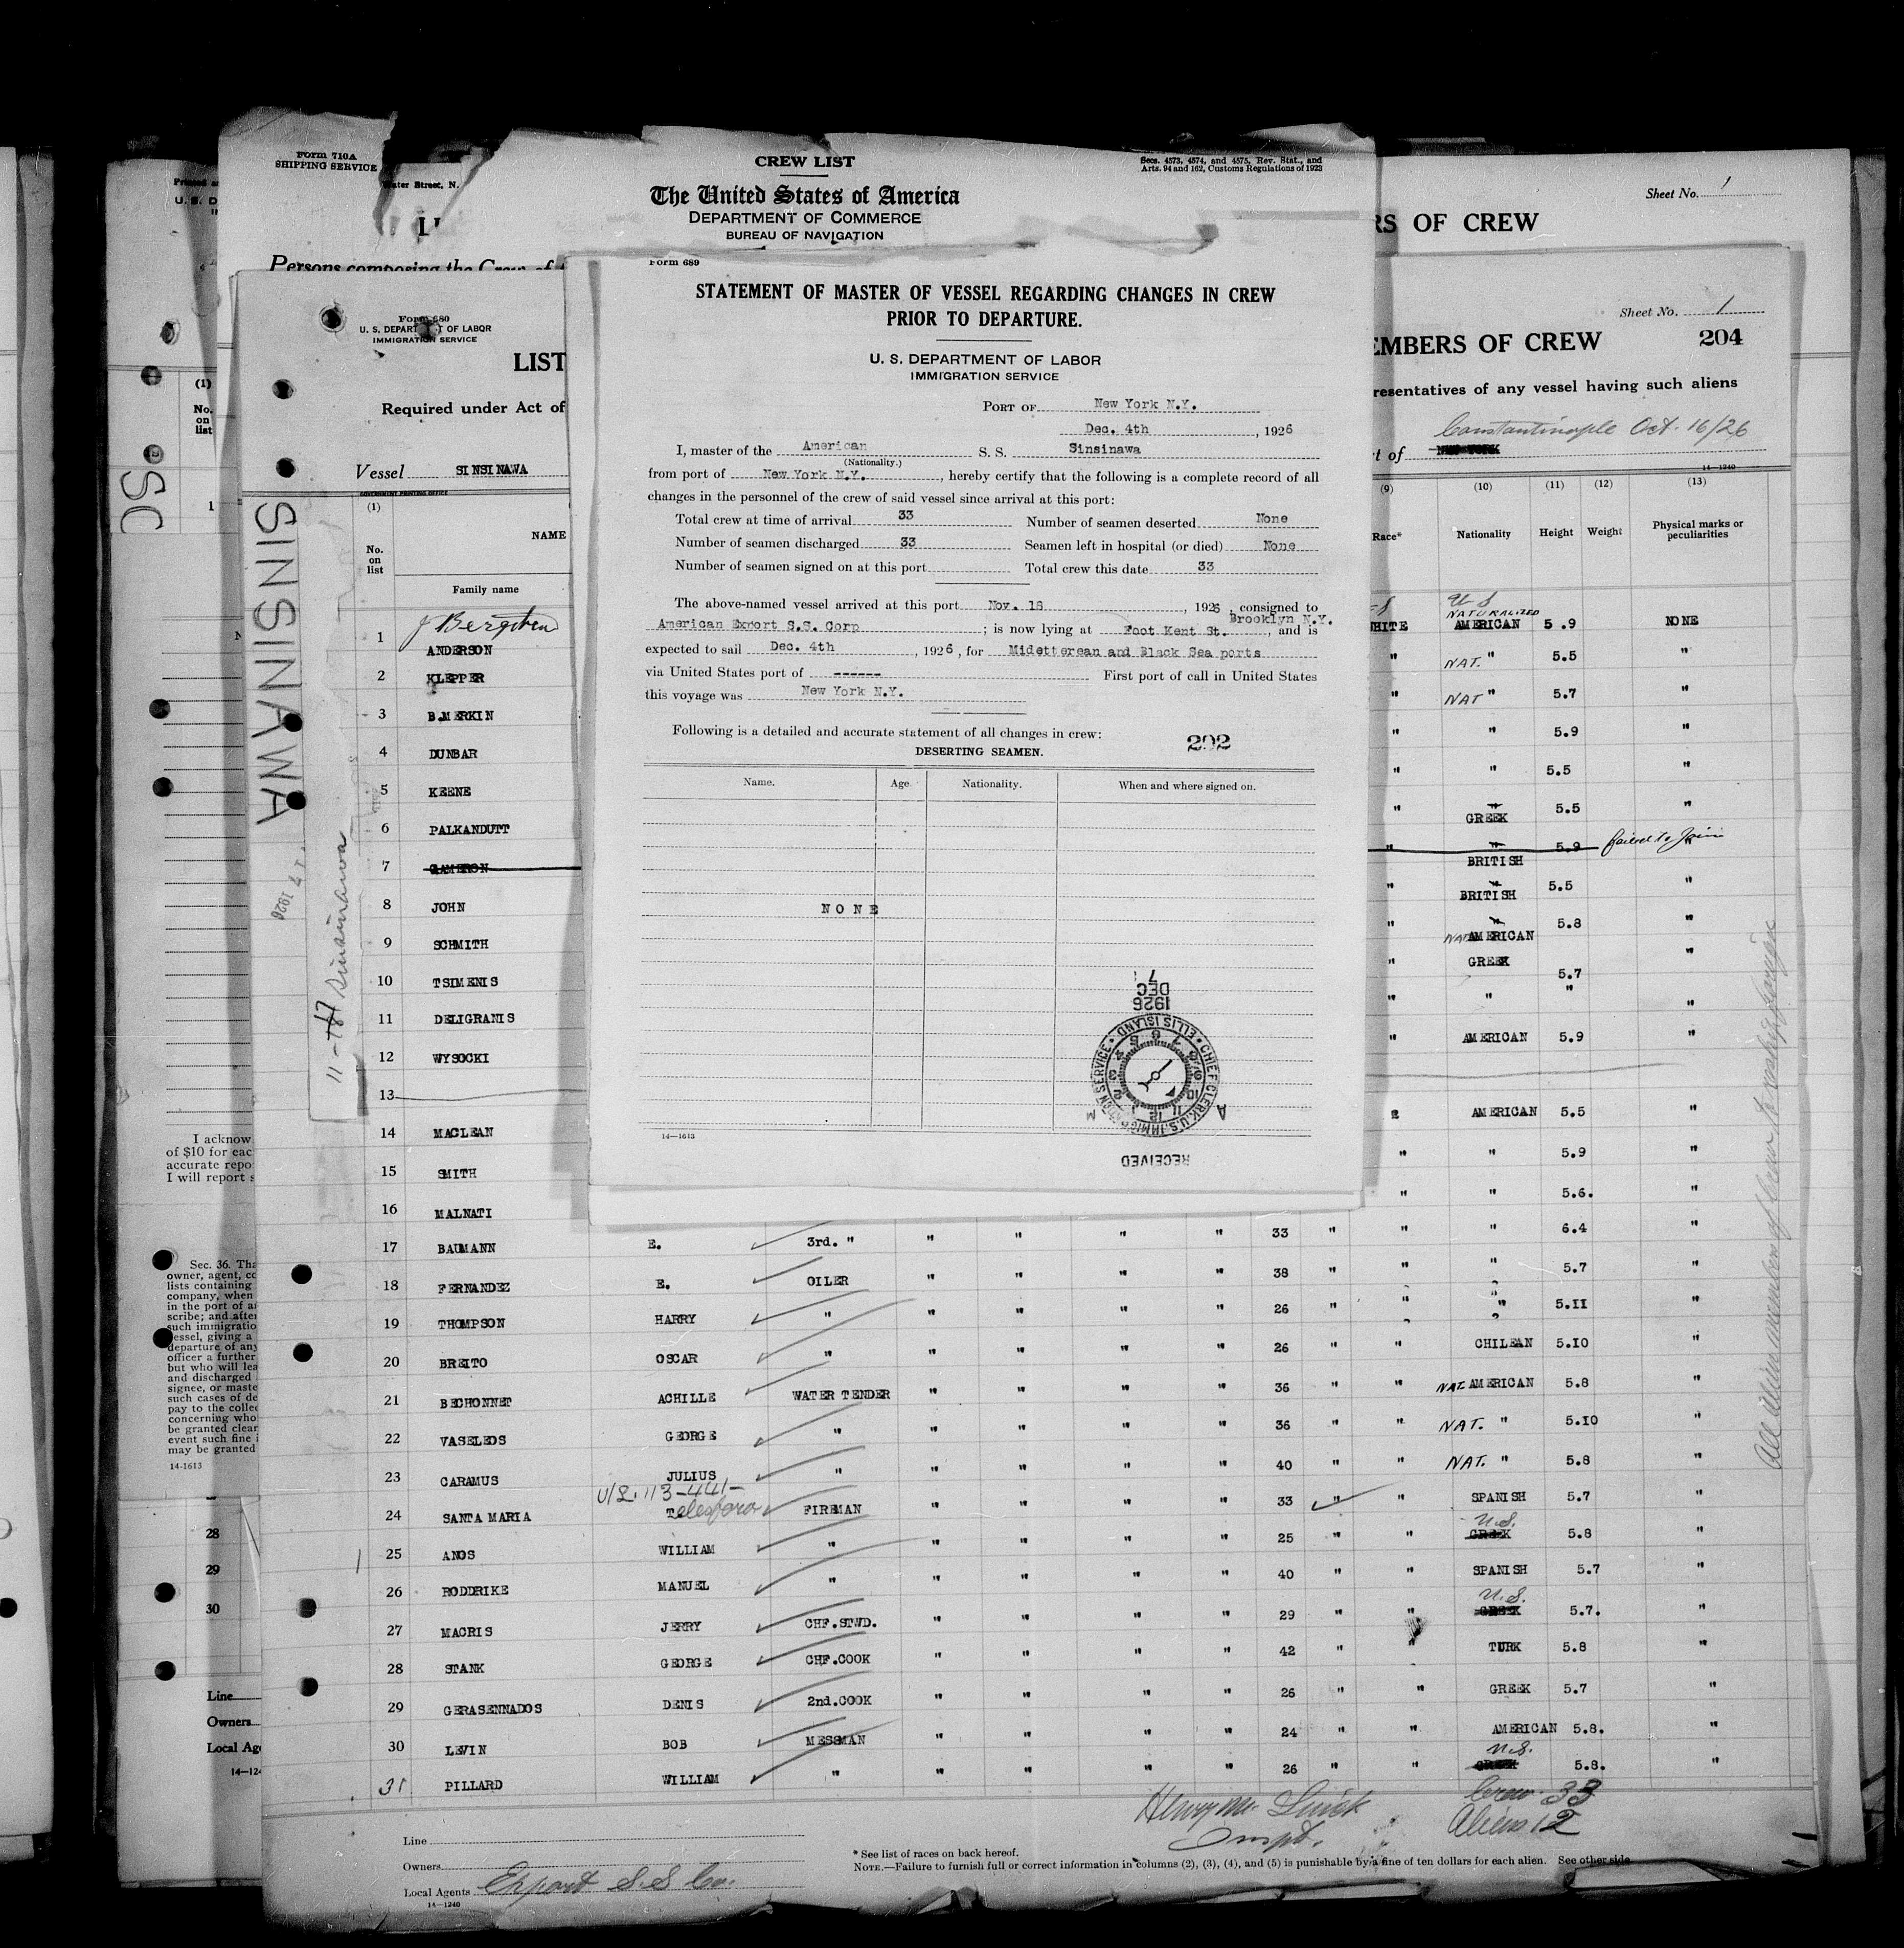 Form 710A
SHIPPING SERVICE
Water Street, N.
CREW LIST
The United States of America
DEPARTMENT OF COMMERCE
BUREAU OF NAVIGATION
Secs. 4573, 4574, and 4575, Rev. Stat., and
Arts. 94 and 162, Customs Regulations of 1923
Sheet No. 1
RS OF CREW
Persons composing the Crew of
Form 689
STATEMENT OF MASTER OF VESSEL REGARDING CHANGES IN CREW
PRIOR TO DEPARTURE.
U. S. DEPARTMENT OF LABOR
IMMIGRATION SERVICE
PORT OF New York N.Y.
Dec. 4th, 1926
I, master of the American S. S. Sinsinawa
(Nationality.)
from port of New York N.Y., hereby certify that the following is a complete record of all
changes in the personnel of the crew of said vessel since arrival at this port:
Total crew at time of arrival 33 Number of seamen deserted None
Number of seamen discharged 33 Seamen left in hospital (or died) None
Number of seamen signed on at this port Total crew this date 33
The above-named vessel arrived at this port Nov. 18, 1926, consigned to
American Export S.S. Corp; is now lying at Foot Kent St. Brooklyn N.Y., and is
expected to sail Dec. 4th, 1926, for Midetterean and Black Sea ports
via United States port of ------ First port of call in United States
this voyage was New York N.Y.
Following is a detailed and accurate statement of all changes in crew:
202
DESERTING SEAMEN.
Name. Age Nationality. When and where signed on.
NONE
DEC 7
1926
CHIEF CLERK, U.S. IMMIGRATION SERVICE ELLIS ISLAND
RECEIVED
14—1613
Form 680
U. S. DEPARTMENT OF LABOR
IMMIGRATION SERVICE
LIST
Required under Act of
Vessel SINSINAWA
GOVERNMENT PRINTING OFFICE
Sheet No. 1
EMBERS OF CREW 204
resentatives of any vessel having such aliens
Constantinople Oct. 16/26
t of NEW YORK
14—1240
(1) (9) (10) (11) (12) (13)
No. on list NAME Race* Nationality Height Weight Physical marks or peculiarities
Family name
J Bergsten
U S
NATURALIZED
1 ANDERSON WHITE AMERICAN 5.9 NONE
2 KLEPPER " NAT. " 5.5 "
3 B.MERKIN " NAT " 5.7 "
4 DUNBAR " " 5.9 "
5 KEENE " " 5.5 "
6 PALKANDUTT " GREEK 5.5 "
7 CAMERON " BRITISH 5.9 failed to join "
8 JOHN " BRITISH 5.5 "
9 SCHMITH " NAT AMERICAN 5.8 "
10 TSIMENIS " GREEK 5.7 "
11 DELIGRANIS " " " "
12 WYSOCKI " AMERICAN 5.9 "
13
14 MACLEAN AMERICAN 5.5 "
15 SMITH " " 5.9 "
16 MALNATI " " 5.6. "
17 BAUMANN E. 3rd. " " " " " 33 " " " 6.4 "
18 FERNANDEZ E. OILER " " " " 38 " " " 5.7 "
19 THOMPSON HARRY " " " " " 26 " " " 5.11 "
20 BREITO OSCAR " " " " " 26 " " CHILEAN 5.10 "
21 BECHONNET ACHILLE WATER TENDER " " " " 36 " " NAT. AMERICAN 5.8 "
22 VASELEOS GEORGE " " " " " 36 " " NAT. " 5.10 "
23 CARAMUS JULIUS " " " " " 40 " " NAT. " 5.8 "
24 SANTA MARIA Telesforo FIREMAN " " " " 33 " " SPANISH 5.7 "
25 ANOS WILLIAM " " " " " 25 " " GREEK U.S. 5.8 "
26 RODDRIKE MANUEL " " " " " 40 " " SPANISH 5.7 "
27 MACRIS JERRY CHF.STWD. " " " " 29 " " GREEK U.S. 5.7. "
28 STANK GEORGE CHF.COOK " " " " 42 " " TURK 5.8 "
29 GERASENNADOS DENIS 2nd.COOK " " " " 26 " " GREEK 5.7 "
30 LEVIN BOB MESSMAN " " " " 24 " " AMERICAN 5.8. "
31 PILLARD WILLIAM " " " " " 26 " " GREEK U.S. 5.8. "
Crew 33
Aliens 12
Line
Owners
Local Agents Export S.S Co.
14—1240
* See list of races on back hereof.
NOTE.—Failure to furnish full or correct information in columns (2), (3), (4), and (5) is punishable by a fine of ten dollars for each alien. See other side
SINSINAWA
11-17 Sinsinawa
1926
SC
(1)
No.
on
list
1
I acknow
of $10 for eac
accurate repo
I will report s
Sec. 36. Tha
owner, agent, co
lists containing
company, when
in the port of a
scribe; and after
such immigratio
vessel, giving a
departure of any
officer a further
but who will lea
and discharged
signee, or maste
such cases of de
pay to the collec
concerning who
be granted clear
event such fine i
may be granted
14-1613
28
29
30
Line
Owners
Local Age
14—124